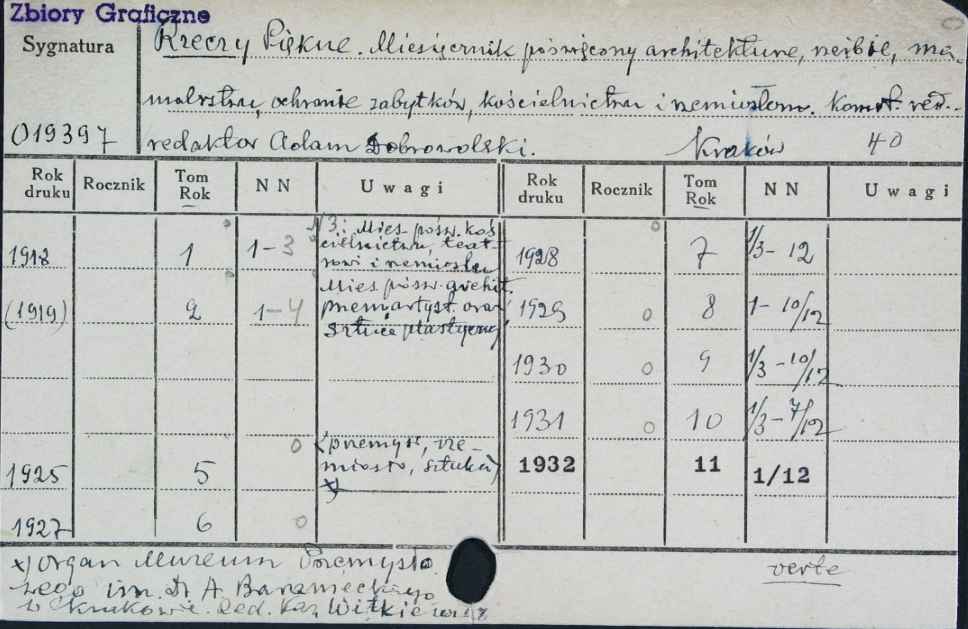 Zbiory Graficzne
Sygnatura
Rzeczy Piękne. Miesięcznik poświęcony architekturze, rzeźbie, ma-
malarstwu, ochronie zabytków, kościelnictwu i rzemiosłom. Komit. red.
019397 redaktor Adam Dobrowolski. Kraków 40
Rok druku Rocznik Tom Rok NN Uwagi Rok druku Rocznik Tom Rok NN Uwagi
1918 1 1-3 N 3: Mies. pośw. koś
cielnictwu, teat-
rowi i rzemiosłu 1928 7 1/3- 12
(1919) 2 1-4 Mies pośw. archit.
przem. artyst. oraz
sztuce plastycznej 1929 0 8 1- 10/12
1930 0 9 1/3 -10/12
1931 0 10 1/3- 7/12
1925 5 (przemysł, rze-
miosło, sztuka)
x) 1932 11 1/12
1927 6
x) Organ Muzeum Przemysło
wego im. Dr A Baranieckiego
w Krakowie. Red. Kaz. Witkiewicz
verte